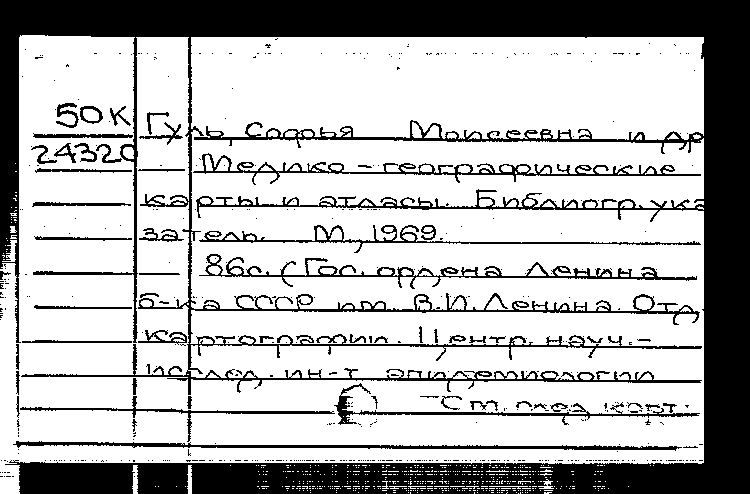 50К Гуль, Софья Моисеевна и др
24320 Медико-географические
карты и атласы. Библиогр. ука
затель. М., 1969.
86с. (Гос. ордена Ленина
б-ка СССР им. В.И. Ленина. Отд.
картографии. Центр. науч.-
исслед. ин-т эпидемиологии
См. след. карт.